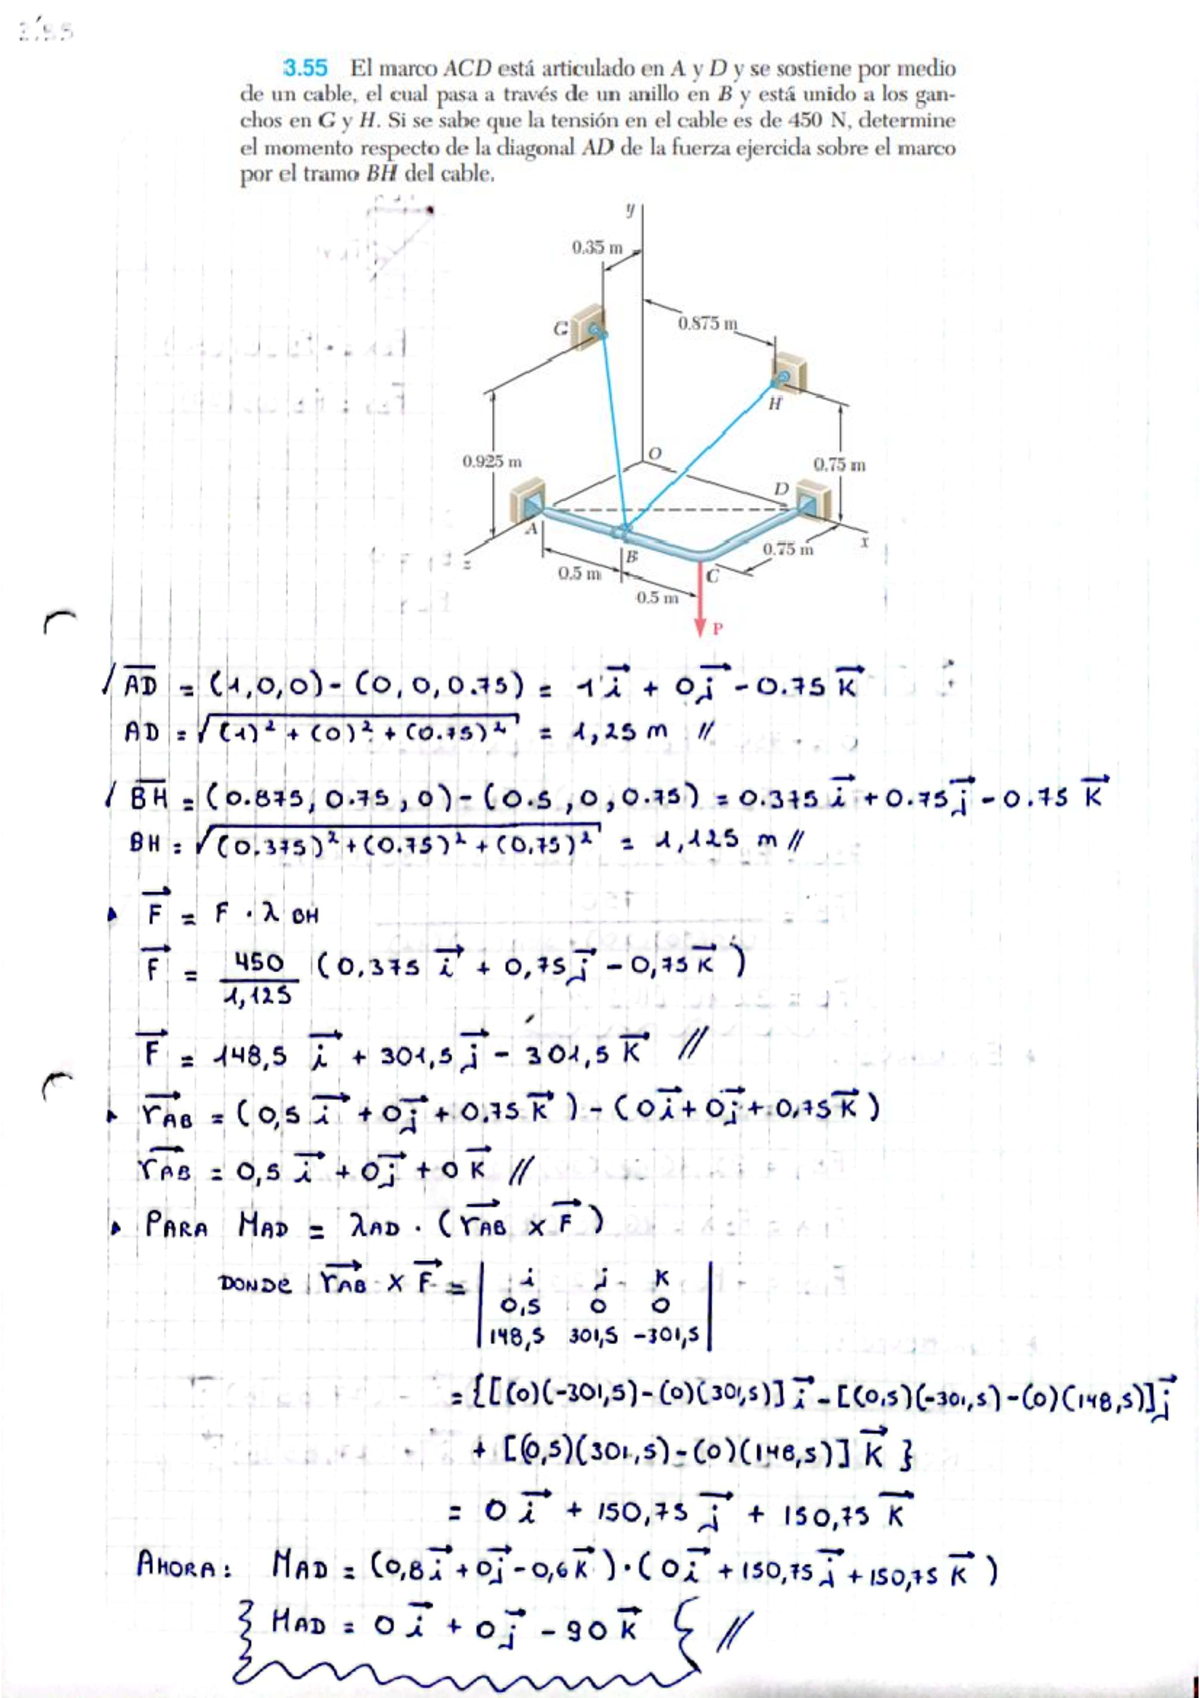 3.55 El marco ACD está articulado en A y D y se sostiene por medio
de un cable, el cual pasa a través de un anillo en B y está unido a los gan-
chos en G y H. Si se sabe que la tensión en el cable es de 450 N, determine
el momento respecto de la diagonal AD de la fuerza ejercida sobre el marco
por el tramo BH del cable.
y
0.35 m
G
0.875 m
H
O
0.925 m
0.75 m
D
A
B
0.75 m
x
z
0.5 m
C
0.5 m
P
/ AD = (1,0,0) - (0,0,0.75) = 1 i + 0 j - 0.75 K
AD = √(1)² + (0)² + (0.75)² = 1,25 m //
/ BH = (0.875, 0.75, 0) - (0.5, 0, 0.75) = 0.375 i + 0.75 j - 0.75 K
BH = √(0.375)² + (0.75)² + (0,75)² = 1,125 m //
F = F · λ BH
F = 450/1,125 (0,375 i + 0,75 j - 0,75 K)
F = 148,5 i + 301,5 j - 301,5 K //
rAB = (0,5 i + 0 j + 0.75 K) - (0 i + 0 j + 0,75 K)
rAB = 0,5 i + 0 j + 0 K //
PARA MAD = λAD · (rAB X F)
DONDE rAB X F = | i j K
0,5 0 0
148,5 301,5 -301,5 |
= {[(0)(-301,5) - (0)(301,5)] i - [(0,5)(-301,5) - (0)(148,5)] j
+ [(0,5)(301,5) - (0)(148,5)] K }
= 0 i + 150,75 j + 150,75 K
AHORA: MAD = (0,8 i + 0 j - 0,6 K) · (0 i + 150,75 j + 150,75 K)
MAD = 0 i + 0 j - 90 K //